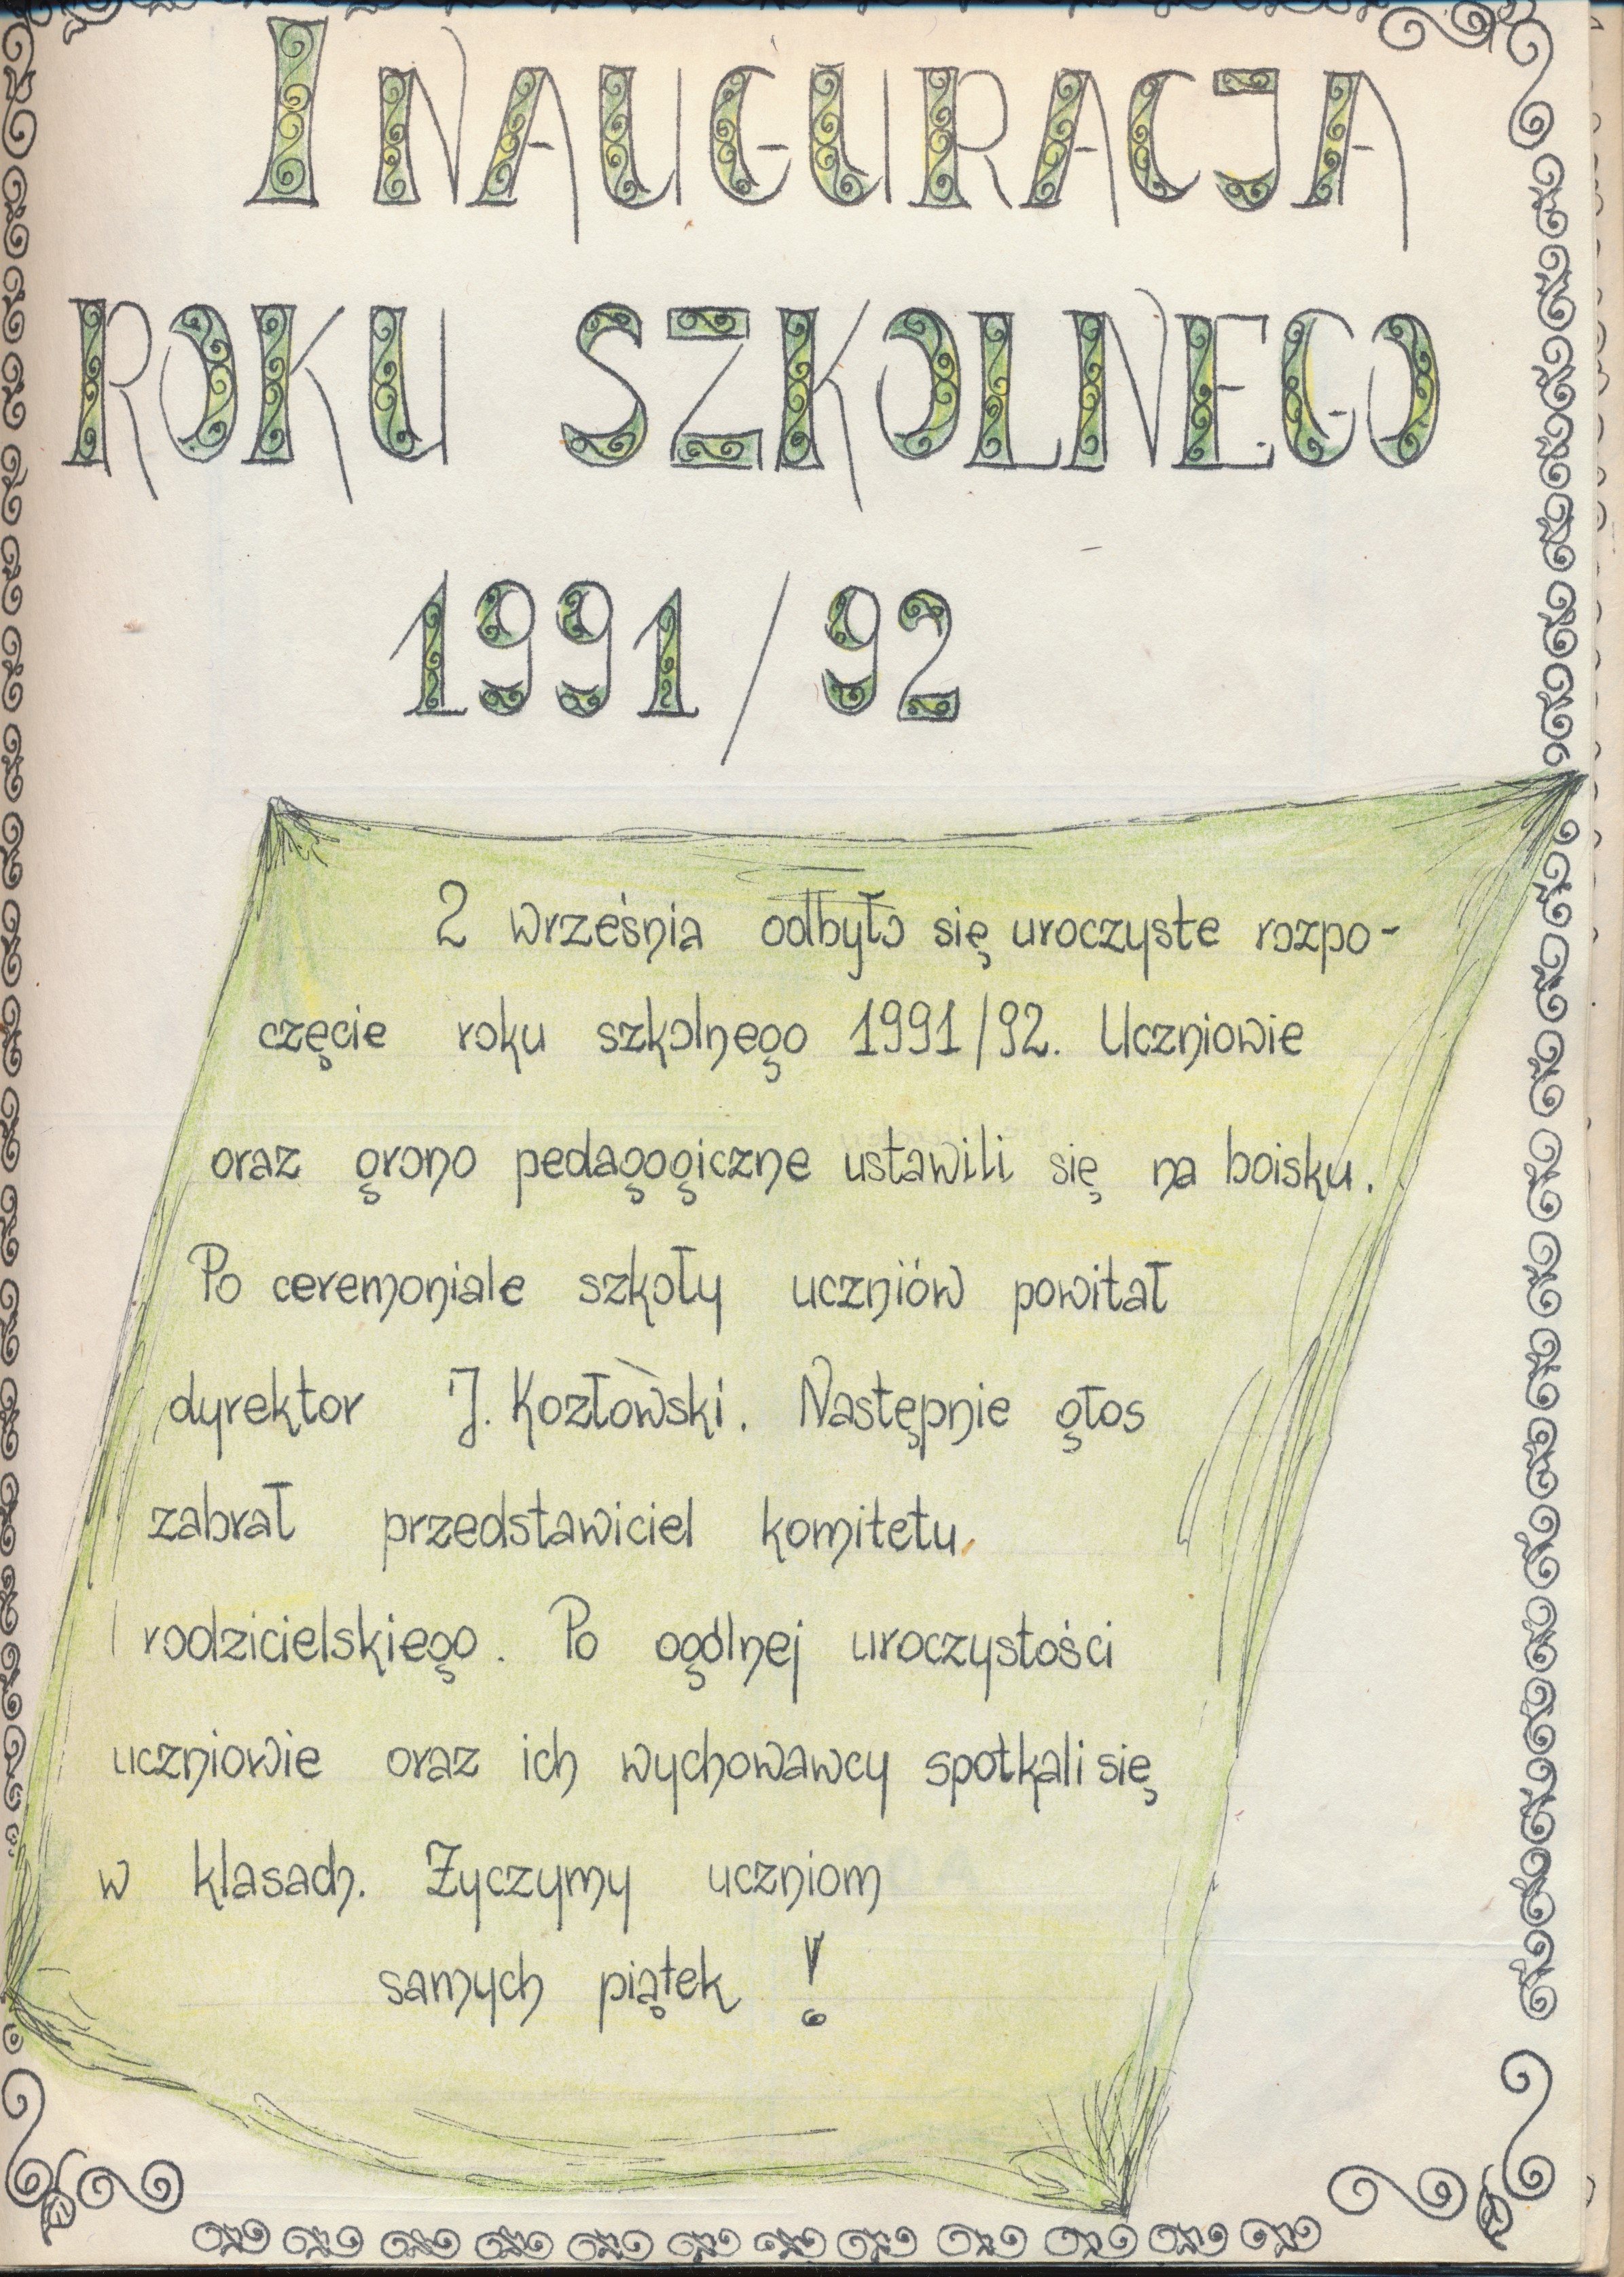 INAUGURACJA
ROKU SZKOLNEGO
1991/92
2 września odbyło się uroczyste rozpo-
częcie roku szkolnego 1991/92. Uczniowie
oraz grono pedagogiczne ustawili się na boisku.
Po ceremoniale szkoły uczniów powitał
dyrektor J. Kozłowski. Następnie głos
zabrał przedstawiciel komitetu
rodzicielskiego. Po ogólnej uroczystości
uczniowie oraz ich wychowawcy spotkali się
w klasach. Życzymy uczniom
samych piątek !